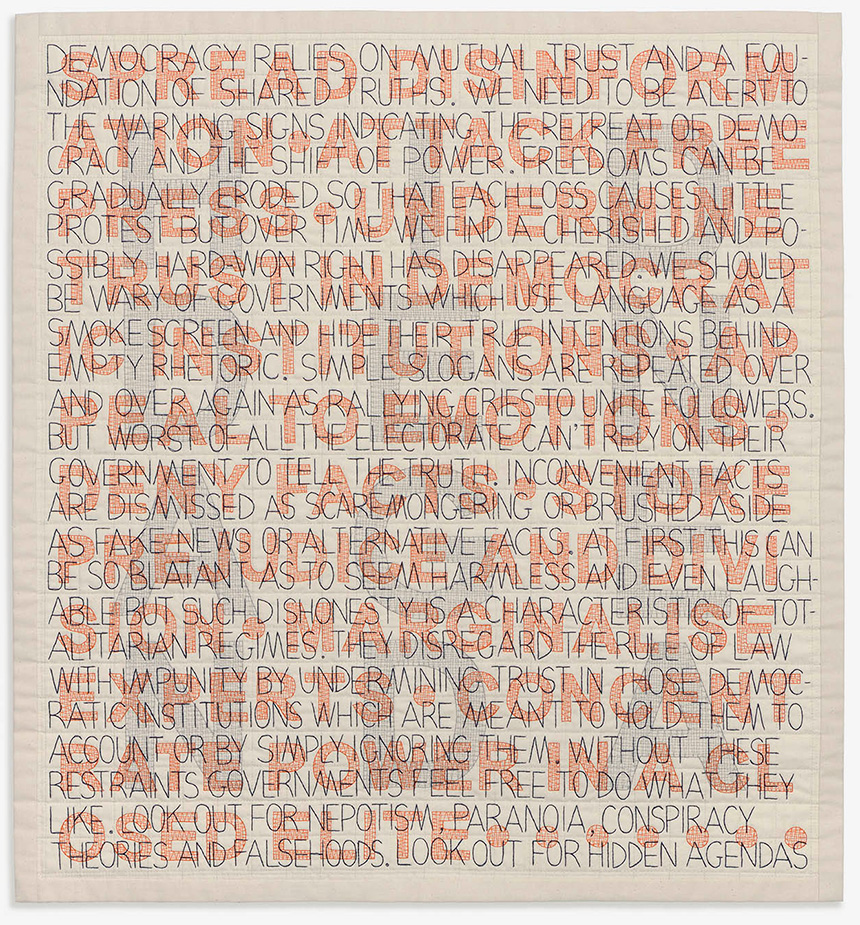 DEMOCRACY RELIES ON MUTUAL TRUST AND A FOU-
NDATION OF SHARED TRUTHS. WE NEED TO BE ALERT TO
THE WARNING SIGNS INDICATING THE RETREAT OF DEMO-
CRACY AND THE SHIFT OF POWER. FREEDOMS CAN BE
GRADUALLY ERODED SO THAT EACH LOSS CAUSES LITTLE
PROTEST BUT OVER TIME WE FIND A CHERISHED AND PO-
SSIBLY HARD-WON RIGHT HAS DISAPPEARED. WE SHOULD
BE WARY OF GOVERNMENTS WHICH USE LANGUAGE AS A
SMOKESCREEN AND HIDE THEIR TRUE INTENTIONS BEHIND
EMPTY RHETORIC. SIMPLE SLOGANS ARE REPEATED OVER
AND OVER AGAIN AS RALLYING CRIES TO UNITE FOLLOWERS.
BUT WORST OF ALL THE ELECTORATE CAN'T RELY ON THEIR
GOVERNMENT TO TELL THE TRUTH. INCONVENIENT FACTS
ARE DISMISSED AS SCAREMONGERING OR BRUSHED ASIDE
AS FAKE NEWS OR ALTERNATIVE FACTS. AT FIRST THIS CAN
BE SO BLATANT AS TO SEEM HARMLESS AND EVEN LAUGH-
ABLE BUT SUCH DISHONESTY IS A CHARACTERISTIC OF TOT-
ALITARIAN REGIMES. THEY DISREGARD THE RULE OF LAW
WITH IMPUNITY BY UNDERMINING TRUST IN THOSE DEMOC-
RATIC INSTITUTIONS WHICH ARE MEANT TO HOLD THEM TO
ACCOUNT OR BY SIMPLY IGNORING THEM. WITHOUT THESE
RESTRAINTS GOVERNMENTS FEEL FREE TO DO WHAT THEY
LIKE. LOOK OUT FOR NEPOTISM, PARANOIA, CONSPIRACY
THEORIES AND FALSEHOODS. LOOK OUT FOR HIDDEN AGENDAS
SPREAD DISINFORM
ATION•ATTACK FREE
PRESS•UNDERMINE
TRUST IN DEMOCRAT
IC INSTITUTIONS•AP
PEAL TO EMOTIONS•
DENY FACTS•STOKE
PREJUDICE AND DIVI
SION•MARGINALISE
EXPERTS•CONCENT
RATE POWER IN A CL
OSED ELITE••••••